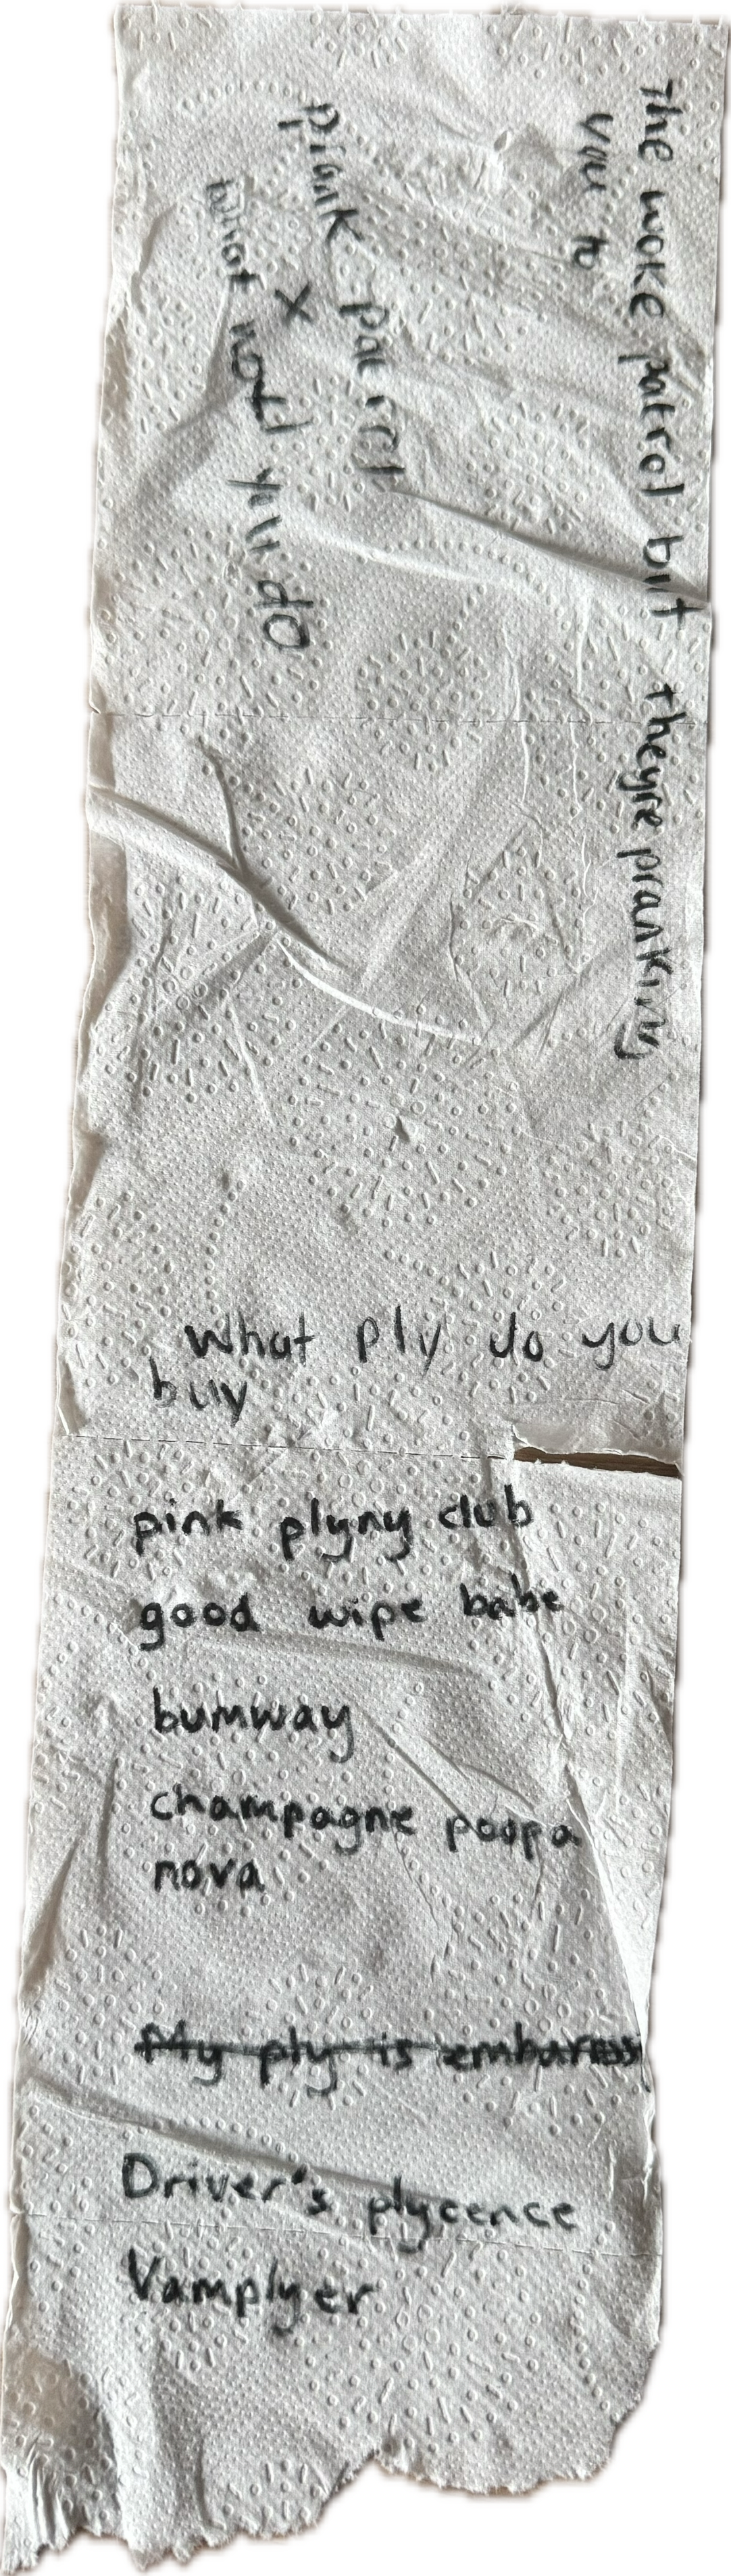 the woke patrol but theyre pranking
you to
prank patrol
X
what would you do
What ply do you
buy
pink plyny club
good wipe babe
bumway
champagne poopa
nova
My ply is embaress
Driver's plycence
Vamplyer